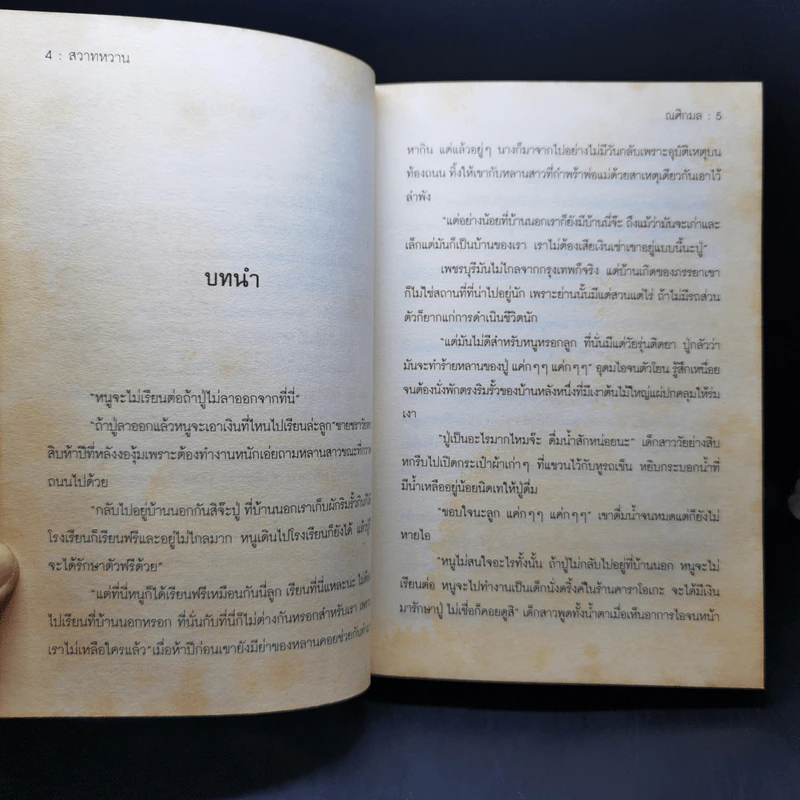 4 : สวาทหวาน
บทนำ
"หนูจะไม่เรียนต่อถ้าปู่ไม่ลาออกจากที่นี่"
"ถ้าปู่ลาออกแล้วหนูจะเอาเงินที่ไหนไปเรียนล่ะลูก"ชายชราวัยหก
สิบห้าปีที่หลังงองุ้มเพราะต้องทำงานหนักเอ่ยถามหลานสาวขณะที่กวาด
ถนนไปด้วย
"กลับไปอยู่บ้านนอกกันสิจ๊ะปู่ ที่บ้านนอกเราเก็บผักริมรั้วกินก็ได้
โรงเรียนก็เรียนฟรีและอยู่ไม่ไกลมาก หนูเดินไปโรงเรียนก็ยังได้ แล้วปู่
จะได้รักษาตัวฟรีด้วย"
"แต่ที่นี่หนูก็ได้เรียนฟรีเหมือนกันนี่ลูก เรียนที่นี่แหละนะ ไม่ต้อง
ไปเรียนที่บ้านนอกหรอก ที่นั่นกับที่นี่ก็ไม่ต่างกันหรอกสำหรับเรา เพราะ
เราไม่เหลือใครแล้ว"เมื่อห้าปีก่อนเขายังมีย่าของหลานคอยช่วยกันทำมา
ณศิกมล : 5
หากิน แต่แล้วอยู่ๆ นางก็มาจากไปอย่างไม่มีวันกลับเพราะอุบัติเหตุบน
ท้องถนน ทิ้งให้เขากับหลานสาวที่กำพร้าพ่อแม่ด้วยสาเหตุเดียวกันเอาไว้
ลำพัง
"แต่อย่างน้อยที่บ้านนอกเราก็ยังมีบ้านนี่จ๊ะ ถึงแม้ว่ามันจะเก่าและ
เล็กแต่มันก็เป็นบ้านของเรา เราไม่ต้องเสียเงินเช่าเขาอยู่แบบนี้นะปู่"
เพชรบุรีมันไม่ไกลจากกรุงเทพก็จริง แต่บ้านเกิดของภรรยาเขา
ก็ไม่ใช่สถานที่ที่น่าไปอยู่นัก เพราะย่านนั้นมีแต่สวนแต่ไร่ ถ้าไม่มีรถส่วน
ตัวก็ยากแก่การดำเนินชีวิตนัก
"แต่มันไม่ดีสำหรับหนูหรอกลูก ที่นั่นมีแต่วัยรุ่นติดยา ปู่กลัวว่า
มันจะทำร้ายหลานของปู่ แค่กๆๆ แค่กๆๆ" อุดมไอจนตัวโยน รู้สึกเหนื่อย
จนต้องนั่งพักตรงริมรั้วของบ้านหลังหนึ่งที่มีเงาต้นไม้ใหญ่แผ่ปกคลุมให้ร่ม
เงา
"ปู่เป็นอะไรมากไหมจ๊ะ ดื่มน้ำสักหน่อยนะ" เด็กสาววัยย่างสิบ
หกรีบไปเปิดกระเป๋าผ้าเก่าๆ ที่แขวนไว้กับหูรถเข็น หยิบกระบอกน้ำที่
มีน้ำเหลืออยู่น้อยนิดเทให้ปู่ดื่ม
"ขอบใจนะลูก แค่กๆๆ แค่กๆๆ" เขาดื่มน้ำจนหมดแต่ก็ยังไม่
หายไอ
"หนูไม่สนใจอะไรทั้งนั้น ถ้าปู่ไม่กลับไปอยู่ที่บ้านนอก หนูจะไม่
เรียนต่อ หนูจะไปทำงานเป็นเด็กนั่งดริ้งค์ในร้านคาราโอเกะ จะได้มีเงิน
มารักษาปู่ ไม่เชื่อก็คอยดูสิ" เด็กสาวพูดทั้งน้ำตาเมื่อเห็นอาการไอจนหน้า